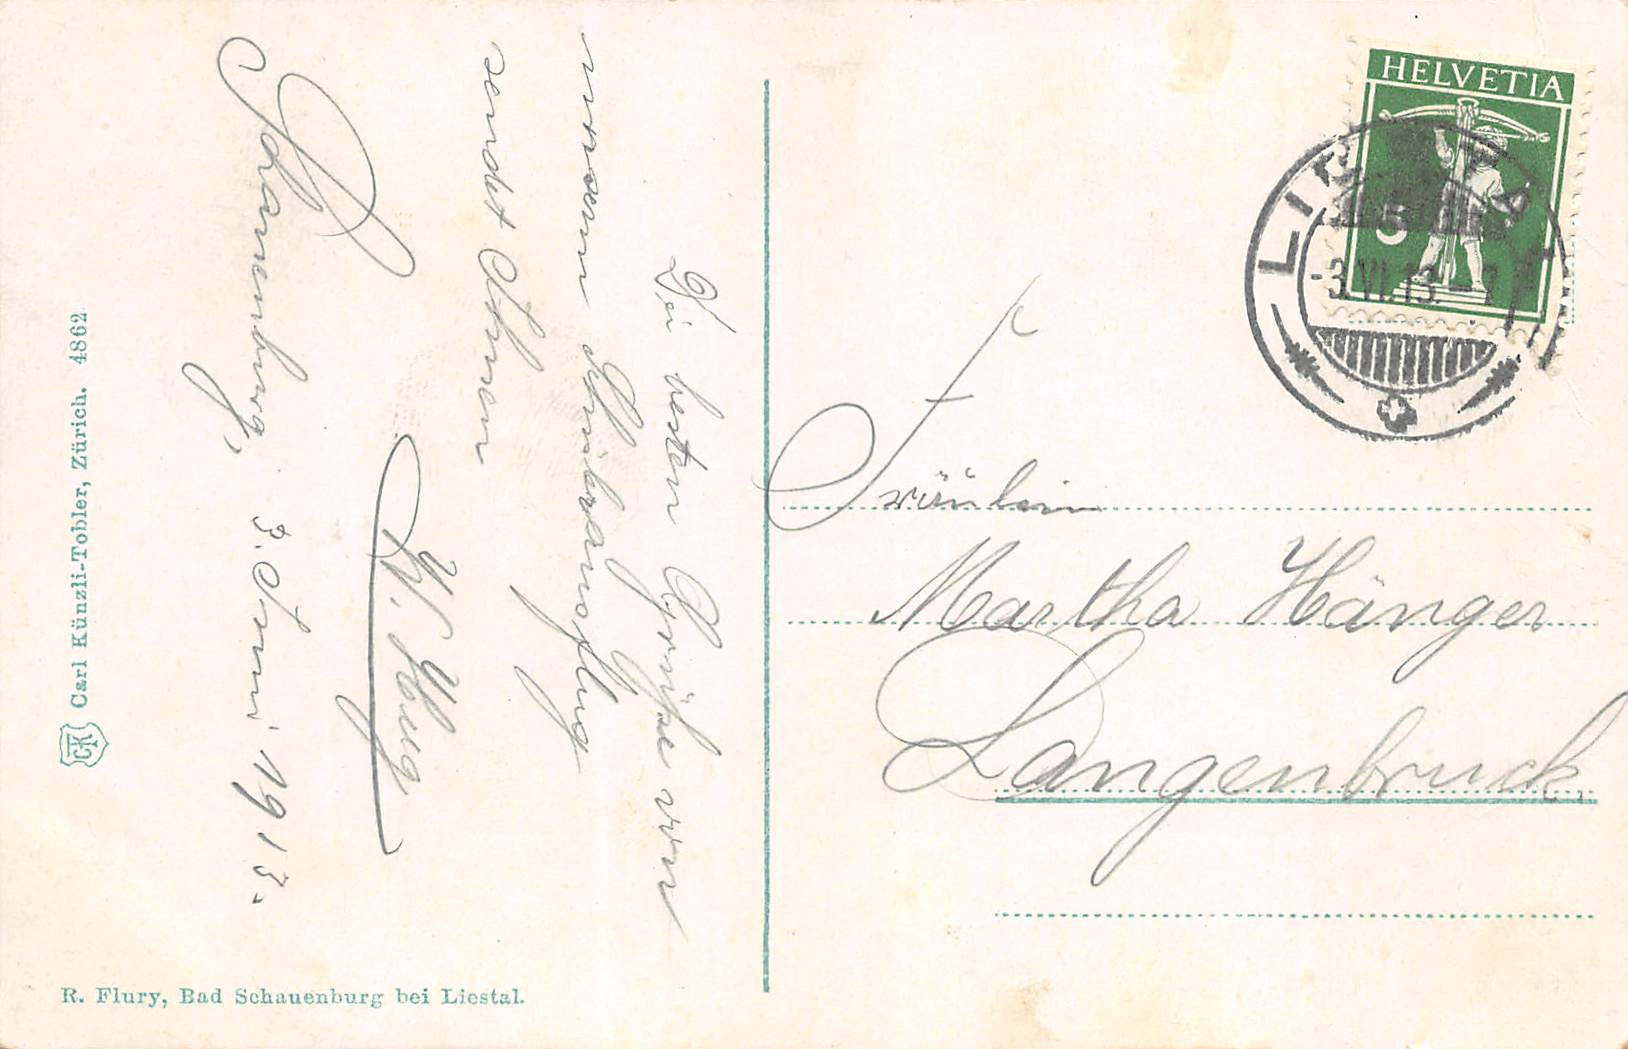 Die besten Grüsse von
unserem Schulausflug
sendet Ihnen
W. Hug
Schauenburg,
3. Juni 1913.
Fräulein
Martha Hänger
Langenbruck.
HELVETIA
5
LIESTAL
-3.VI.13.-7
Carl Künzli-Tobler, Zürich. 4862
CKT
R. Flury, Bad Schauenburg bei Liestal.